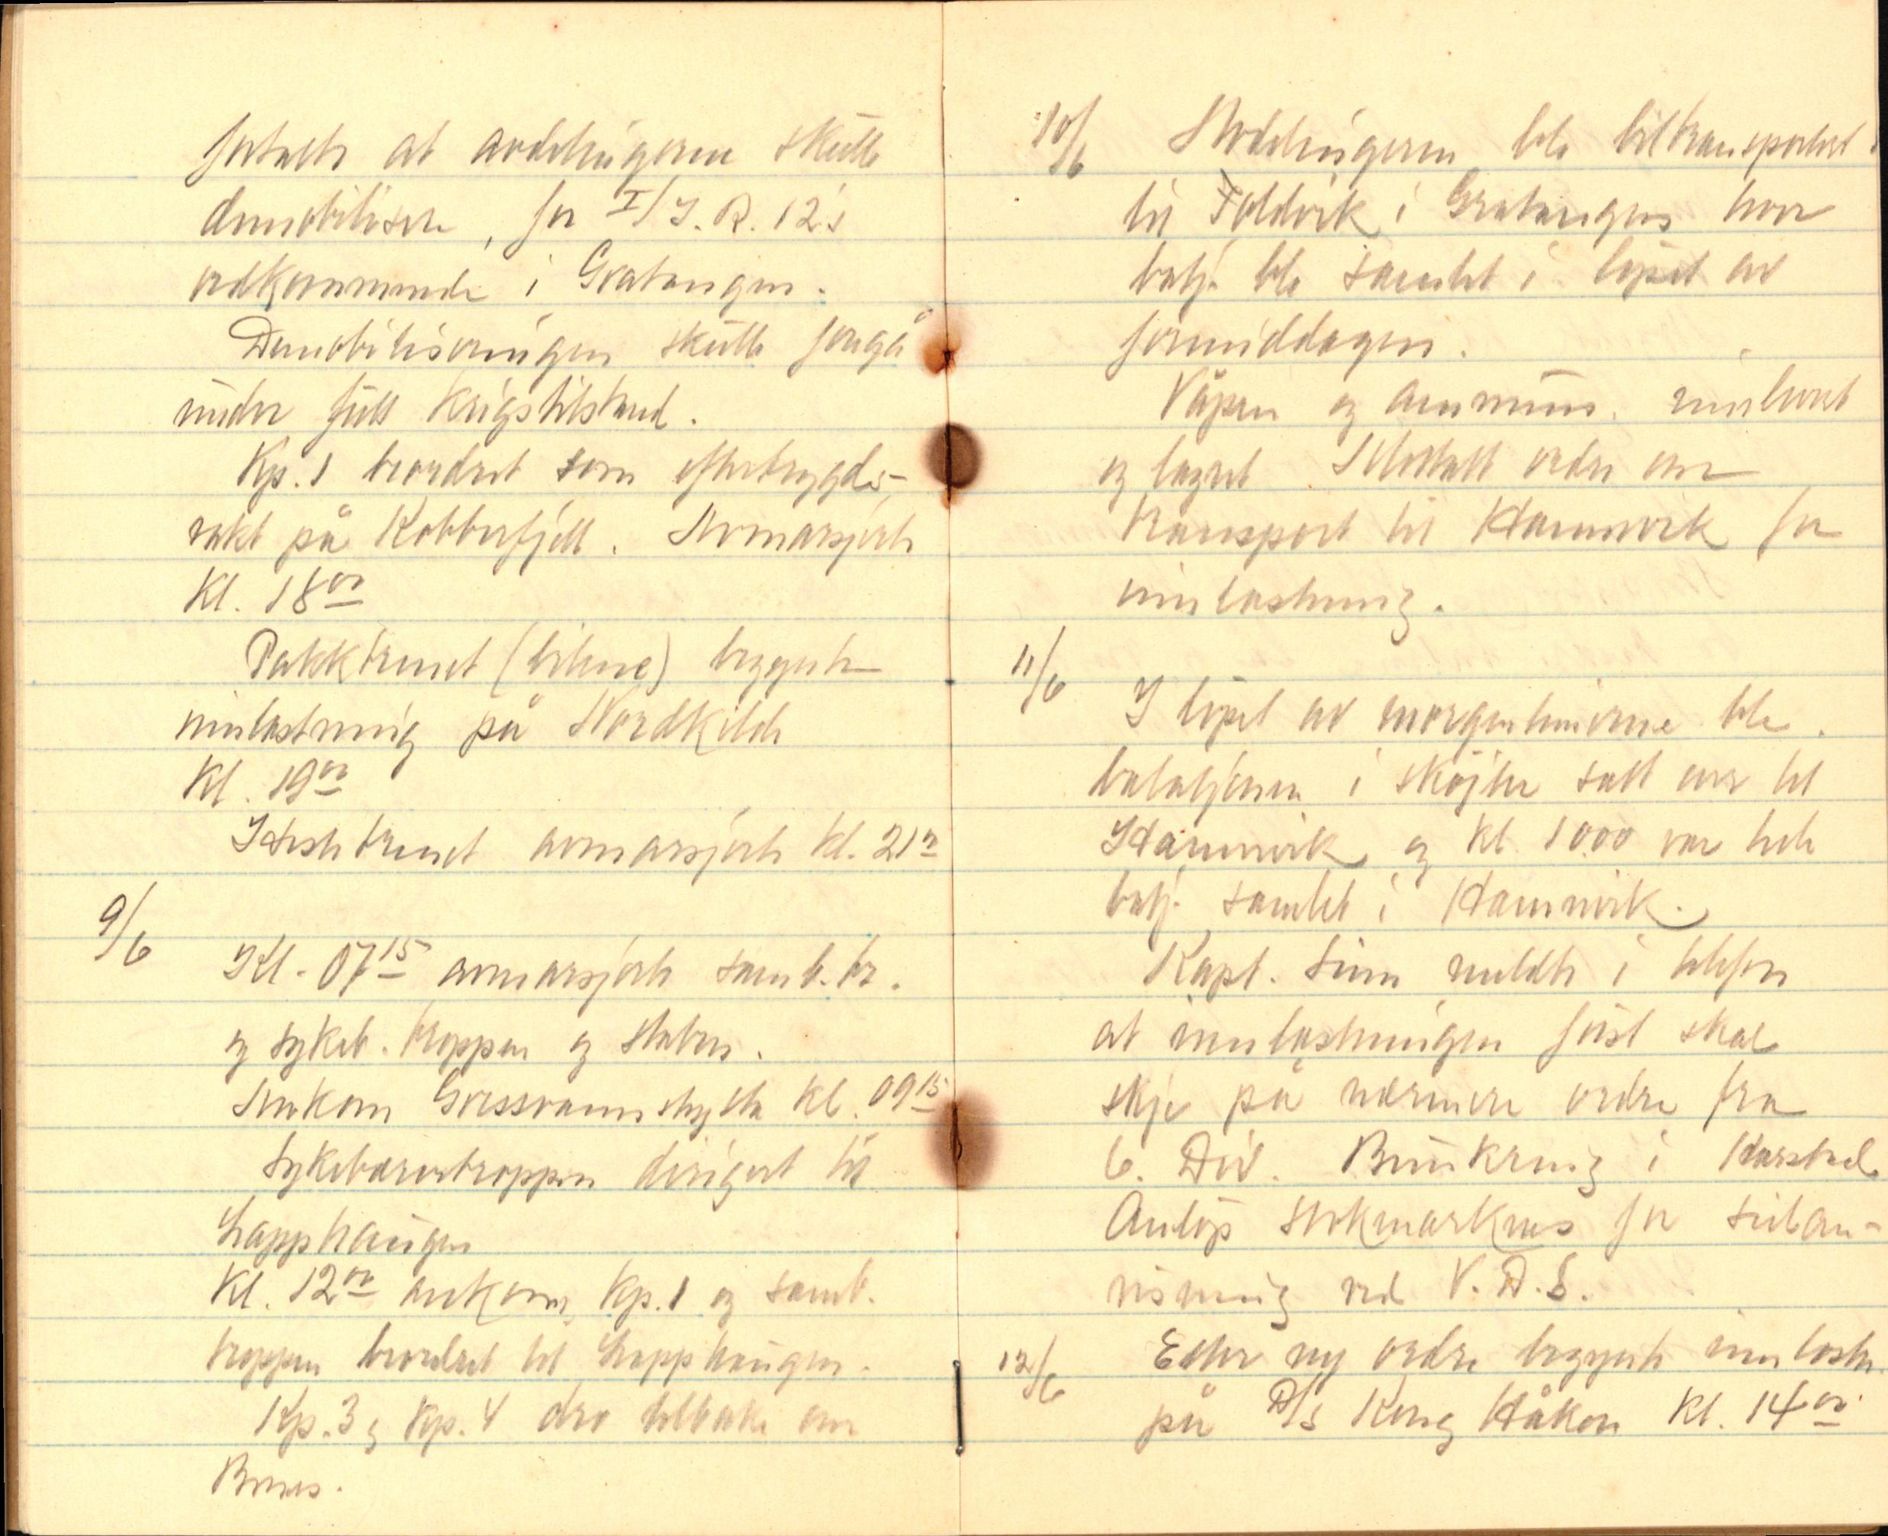 fortalte at avdelingene skulle
demobilisere, for I/I.R. 12's
vedkommende i Gratangen.
Demobiliseringen skulle foregå
under full krigstilstand.
Kp. 1 beordret som etterbrygds-
vakt på Kobberfjell. Avmarsjerte
Kl. 18 00
Pakktrenet (bilene) begynte
innlastning på Nordkilde
Kl. 19 00
Hestetrenet avmarsjerte kl. 21
9/6
Kl. 07 15 avmarsjerte samb.tr.
og sykeb. troppen og staben.
Ankom Gressvannshytta kl. 09 15
Sykebærertroppen dirigert til
Lapphaugen
Kl. 12 00 ankom Kp. 1 og samb.
troppen beordret til Lapphaugen.
Kp. 3 og Kp. 4 dro tilbake om
10/6 Avdelingene ble biltransportert
til Foldvik i Gratangen hvor
batj. ble samlet i løpet av
formiddagen.
Våpen og ammuns. innlevert
og lagret. Mottatt ordre om
transport til Hamnvik for
innlastning.
11/6
I løpet av morgentimerne ble
bataljonen i skøjter satt over til
Hamnvik og kl 1000 var hele
batj. samlet i Hamnvik.
Kapt. meldte i telefon
at innlastningen først skal
skje på nærmere ordre fra
6. Div. Bunkring i Harstad
Anløp Stokmarknes for
visning ved V.D.S.
12/6 Etter ny ordre begynte innlastn.
på D/S Kong Håkon kl. 14 00